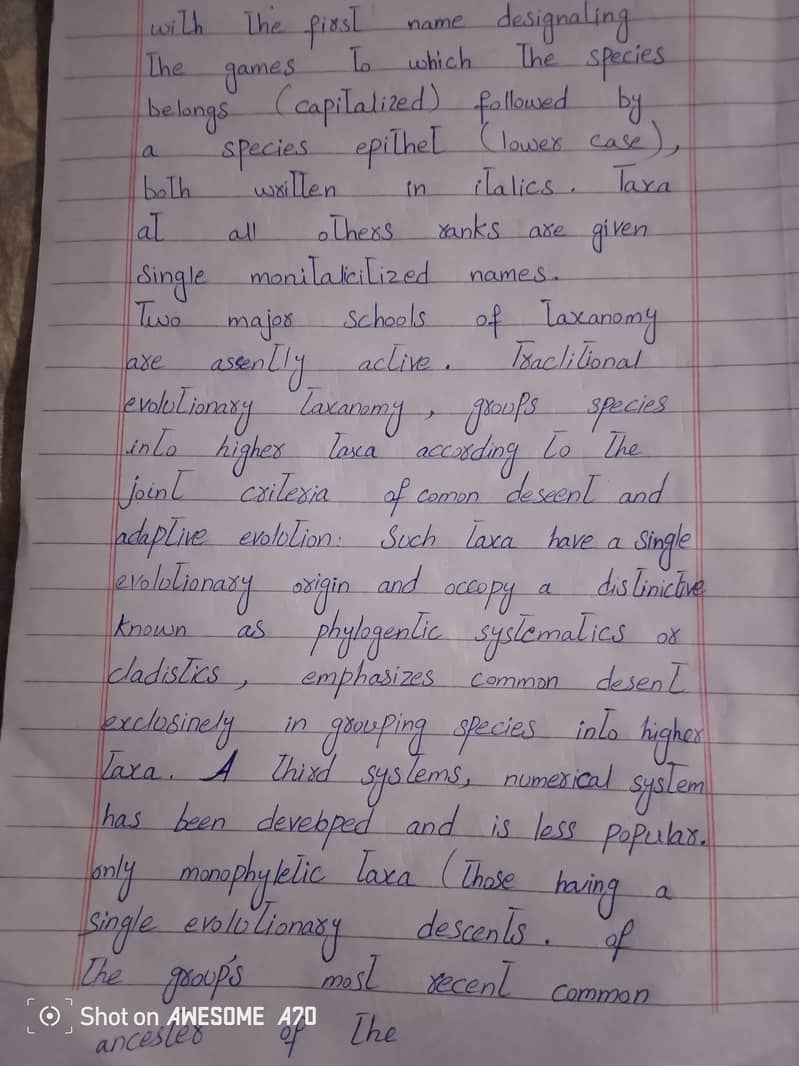 with the first name designating
The games To which The species
belongs (capitalized) followed by
a species epithet (lower case),
both written in italics. Taxa
at all others ranks are given
single monitalicilized names.
Two major schools of Taxanomy
are assently active. Traclitional
evolutionary Taxanomy, groups species
into higher Taxa according to The
joint criteria of comon deseent and
adaptive evolotion: Such taxa have a single
evolotionary origin and occopy a distinictive
known as phylogentic systematics or
cladistics, emphasizes common desent
exclosinely in grouping species into higher
Taxa. A Third systems, numerical system
has been developed and is less popular.
only monophyletic Taxa (Those having a
single evolotionary descents. of
The group's most recent common
ancester of The
Shot on AWESOME A70